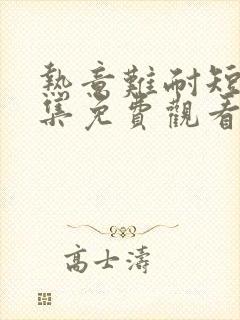 熱意難耐短
集免費觀看
高士濤